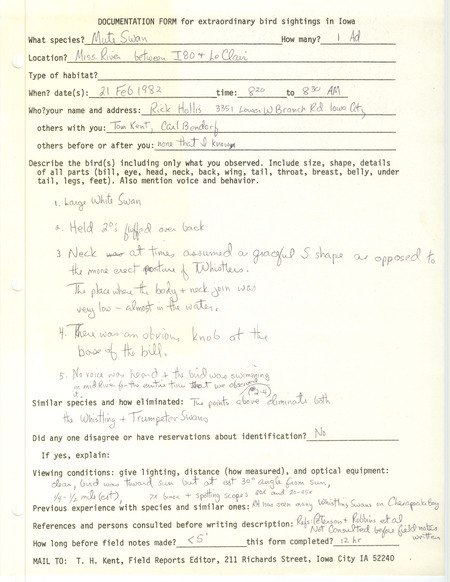 DOCUMENTATION FORM for extraordinary bird sightings in Iowa
What species? Mute Swan How many? 1 Ad
Location? Miss. River between I80 + Le Clair
Type of habitat?
When? date(s): 21 Feb 1982 time: 820 to 830 AM
Who?your name and address: Rick Hollis 3351 Lower W Branch Rd Iowa City
others with you: Tom Kent, Carl Bendorf
others before or after you: none that I know
Describe the bird(s) including only what you observed. Include size, shape, details
of all parts (bill, eye, head, neck, back, wing, tail, throat, breast, belly, under
tail, legs, feet). Also mention voice and behavior.
1. Large White Swan
2. Held 2°'s fluffed over back
3 Neck at times assumed a graceful S shape as opposed to
the more erect posture of Whistlers.
The place where the body + neck join was
very low - almost in the water.
4. There was an obvious knob at the
base of the bill.
5. No voice was heard + the bird was swimming
in mid River for the entire time that we observed
it.
(#2-4)
Similar species and how eliminated: The points above eliminate both
the Whistling + Trumpeter Swans
Did any one disagree or have reservations about identification? No
If yes, explain:
Viewing conditions: give lighting, distance (how measured), and optical equipment:
clear, bird was toward sun but at est 30° angle from sun,
1/4 - 1/2 mile (est), 7x binox + spotting scopes 20x and 20-45x
Previous experience with species and similar ones: RH has seen many Whistling Swans on Chesapeake Bay
References and persons consulted before writing description: Refs: Peterson + Robbins et al
Not Consulted before field notes
written
How long before field notes made? <5' this form completed? 12 hr
MAIL TO: T. H. Kent, Field Reports Editor, 211 Richards Street, Iowa City IA 52240